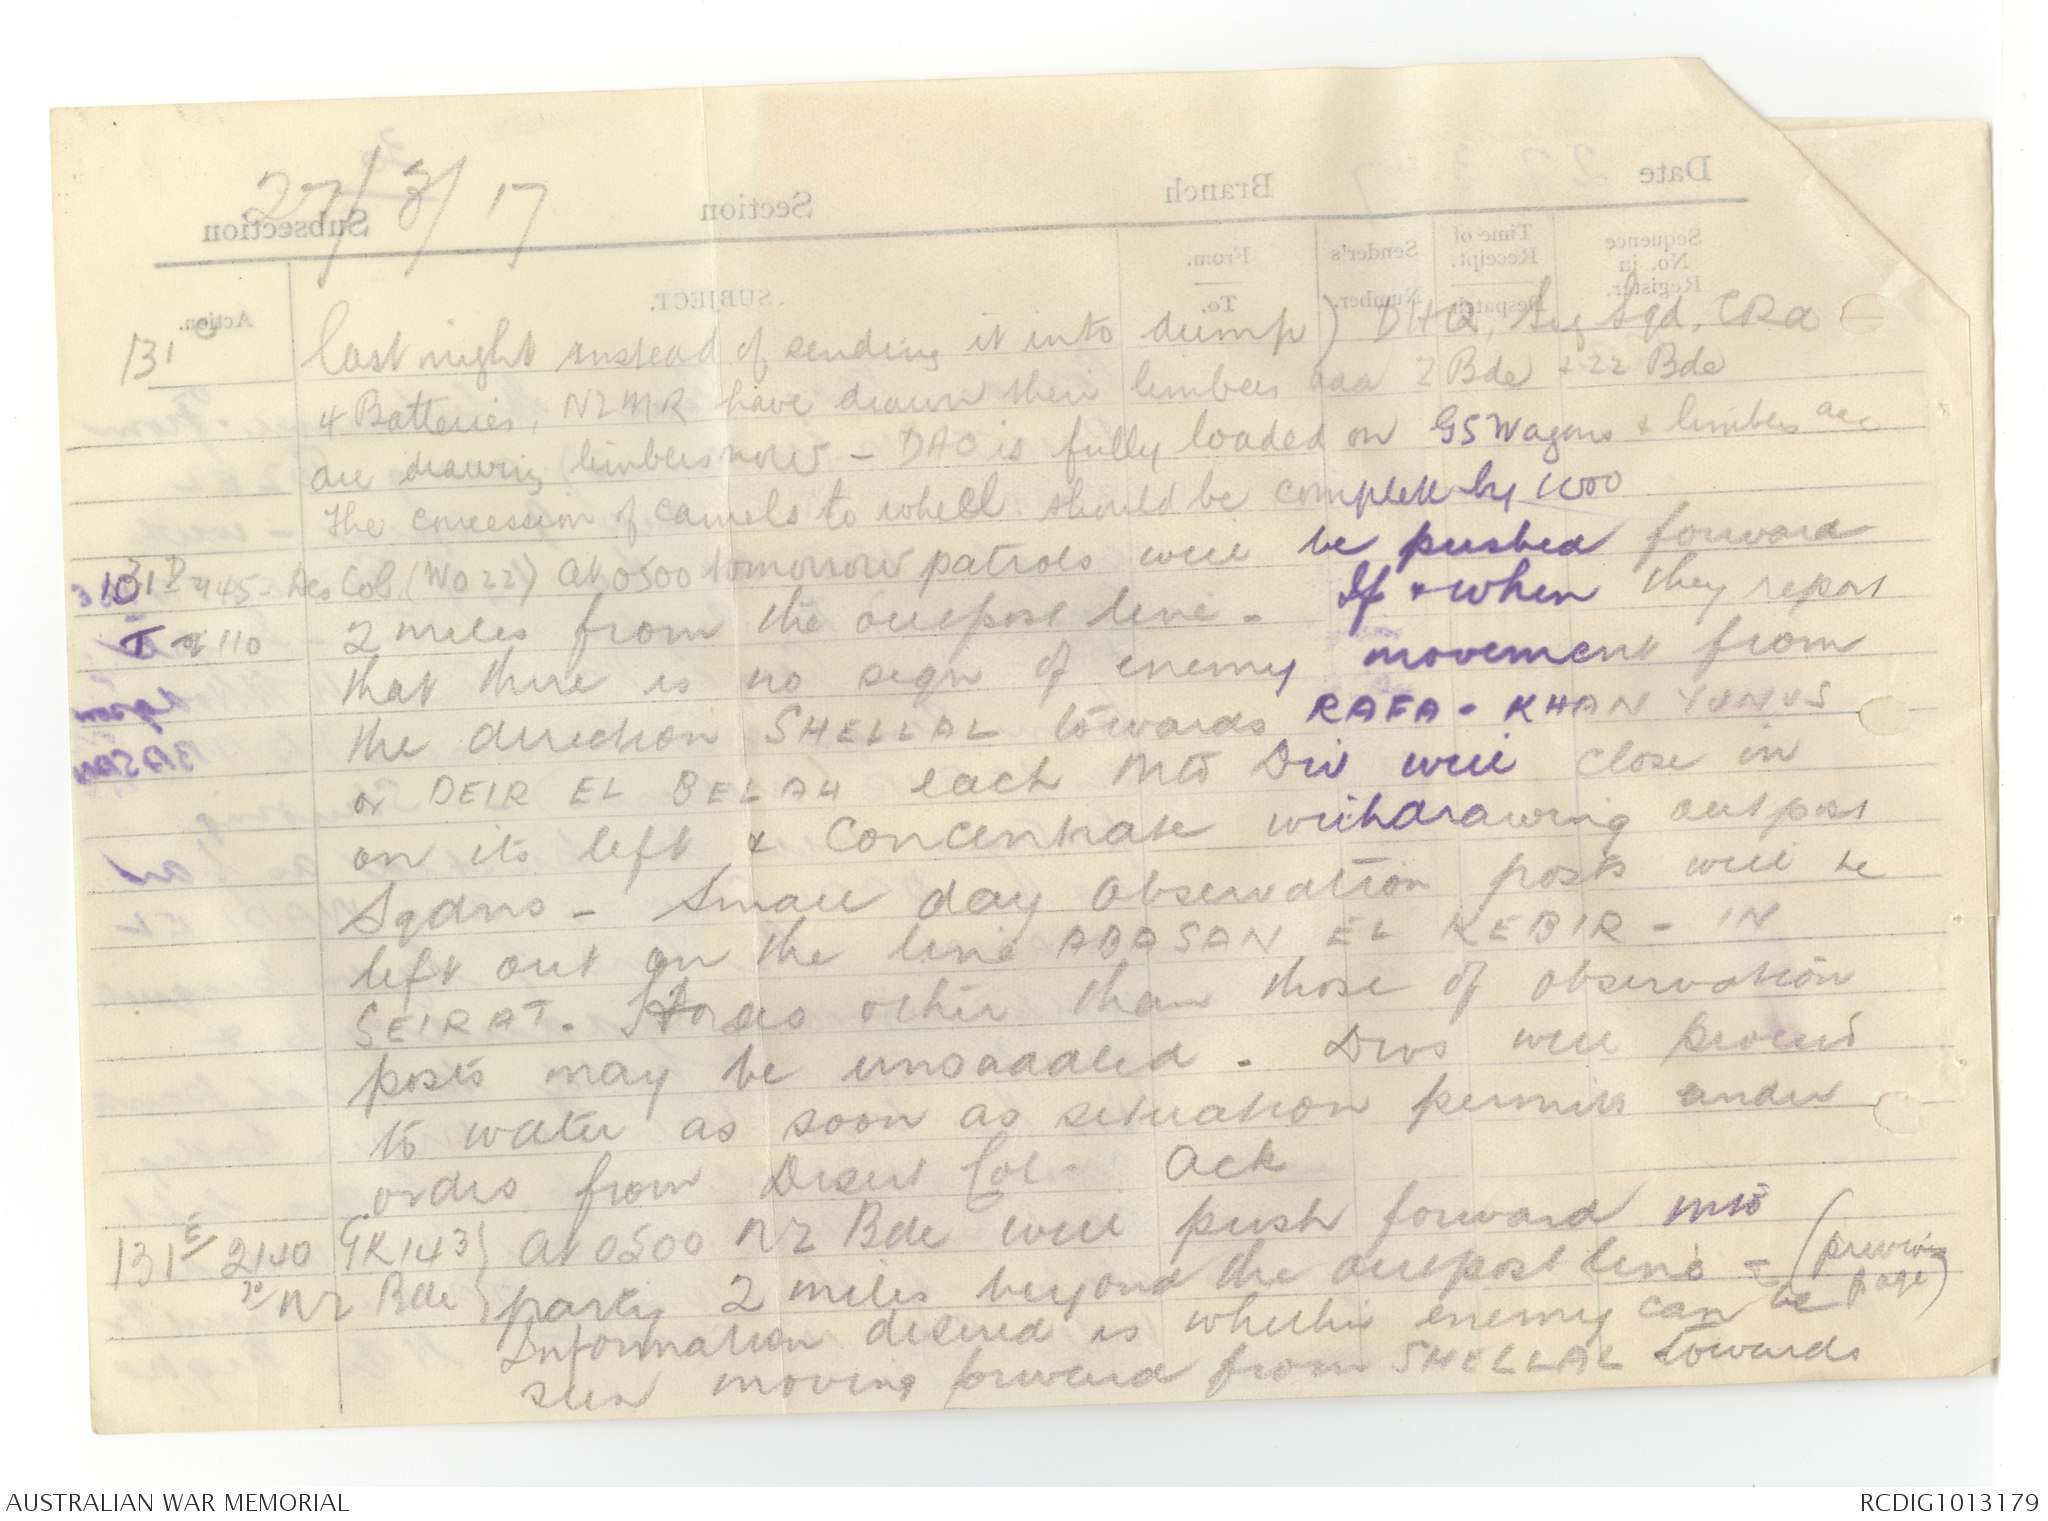 27/3/17
131 C last night instead of sending it into dump) DHQ, Sig Sqd, CRA
4 Batteries, NZMR have drawn their limbers aaa 2 Bde & 22 Bde
are drawing limbers now - DAC is fully loaded on GS Wagons & limbers aaa
The concession of camels to wheel should be complete by 1000
131 D 1945 - Des Col. (WO 22) At 0500 tomorrow patrols will be pushed forward
110 2 miles from the outpost line - If & when they report
that there is no sign of enemy movement from
the direction SHELLAL towards RAFA - KHAN YUNUS
or DEIR EL BELAH each Mtd Div will close in
on its left & Concentrate withdrawing outpost
Sqdns - Small day observation posts will be
left out on the line ABASAN EL KEBIR - IN
SEIRAT. Horses other than those of observation
posts may be unsaddled - Divs will proceed
to water as soon as situation permits under
orders from Desert Col - Ack
131 E 2140 GR143 } At 0500 NZ Bde will push forward into
to NZ Bde } party 2 miles beyond the outpost line - (previous page)
Information desired is whether enemy can be
seen moving forward from SHELLAL towards
Date Branch Section Subsection
Sequence No. in Register.
Time of Receipt. Despatch
Sender's Number.
From. To.
SUBJECT.
Action.
AUSTRALIAN WAR MEMORIAL
RCDIG1013179